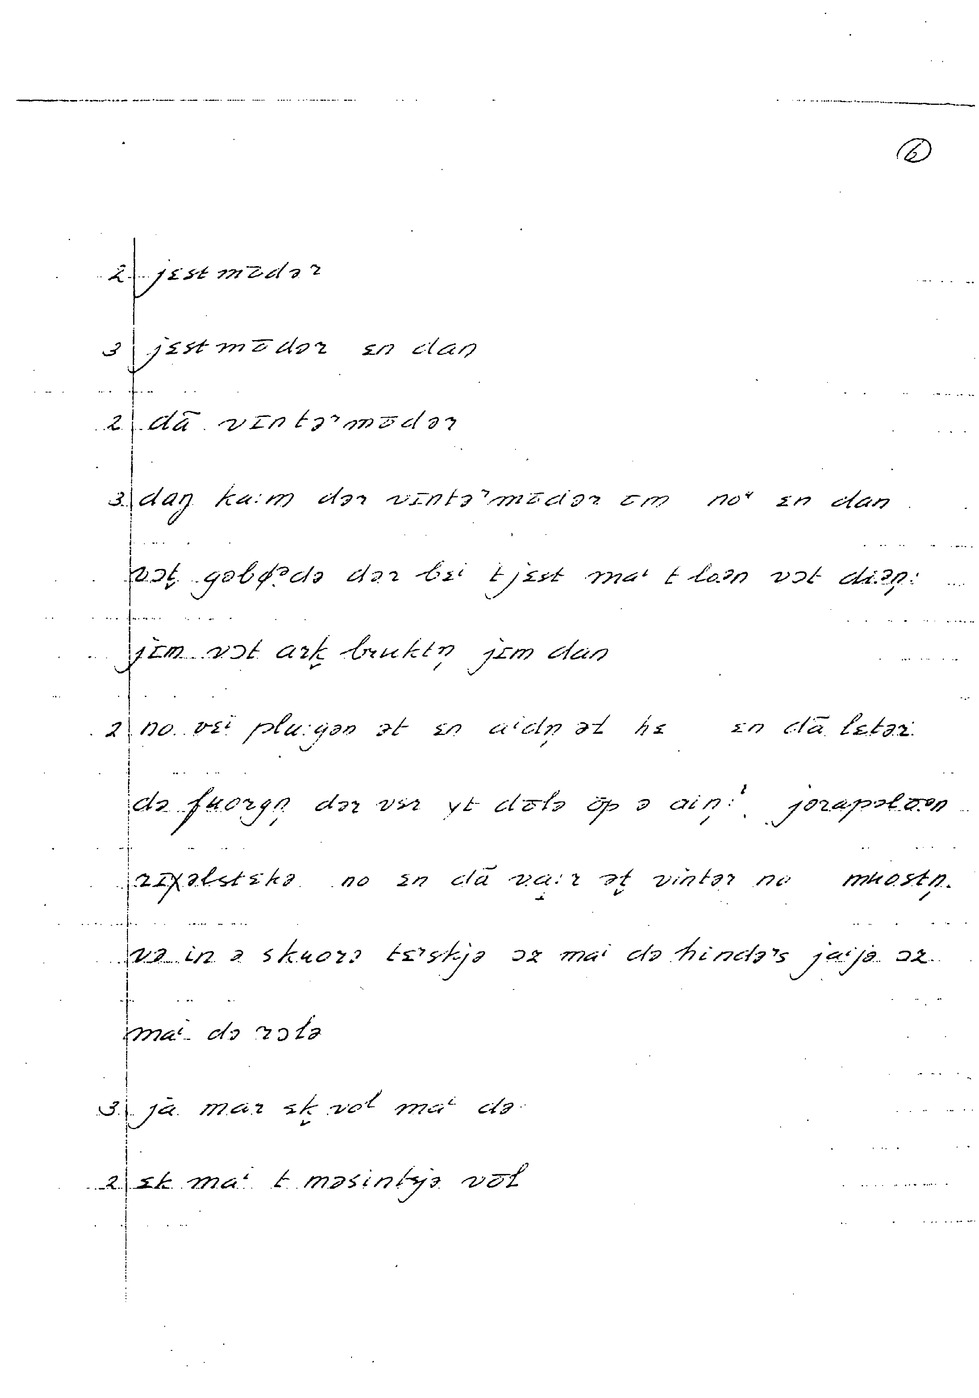 6
2 jɛstmōdər
3 jɛstmōdər ɛn dan
2 dā vɪntəʳmōdər
3 daŋ ka:m dər vɪntəʳmōdər om noᵘ ɛn dan
vɔt̬ gəbø̄ᵊdə dər bɛi tjɛst maⁱ t loən vɔt diəņ:
jɪm vɔt ark̬ bruktņ jɪm dan
2 no vɛi plu:gən ət ɛn aⁱdņ ət hɛ ɛn dā lɛtər
də fuorgņ dər vɛr yt dōlə ōp ə aiņ! jərapəlōən
rɪχəlstɛkə no ɛn dā va:r ət̬ vintər na muostņ.
və in ə skuorə tɛʳskjə ɔr maⁱ də hindəʳs jaⁱjə ɔr
maⁱ də rɔlə
3 jā mar ɛk̬ vol maⁱ də
2 ɛk maⁱ t məsintjə vōl